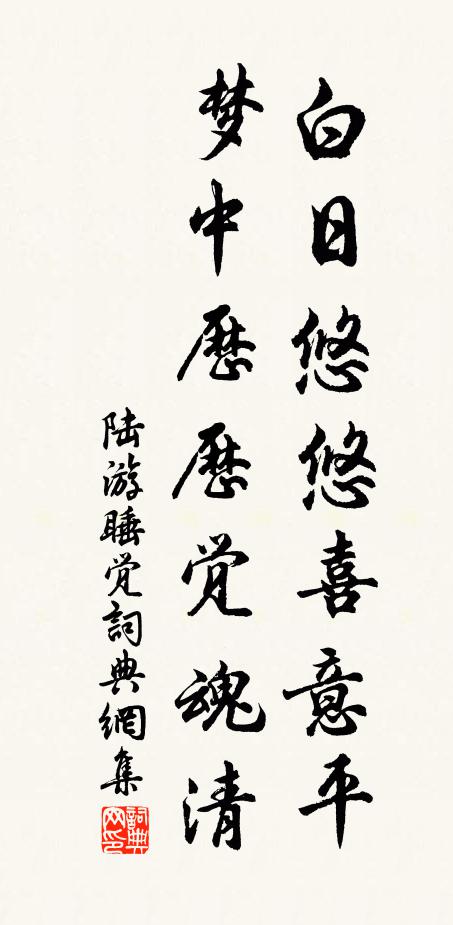 白日悠悠喜意平
梦中歷歷觉魂清
陆游睡觉詞典網集
詞典
网印